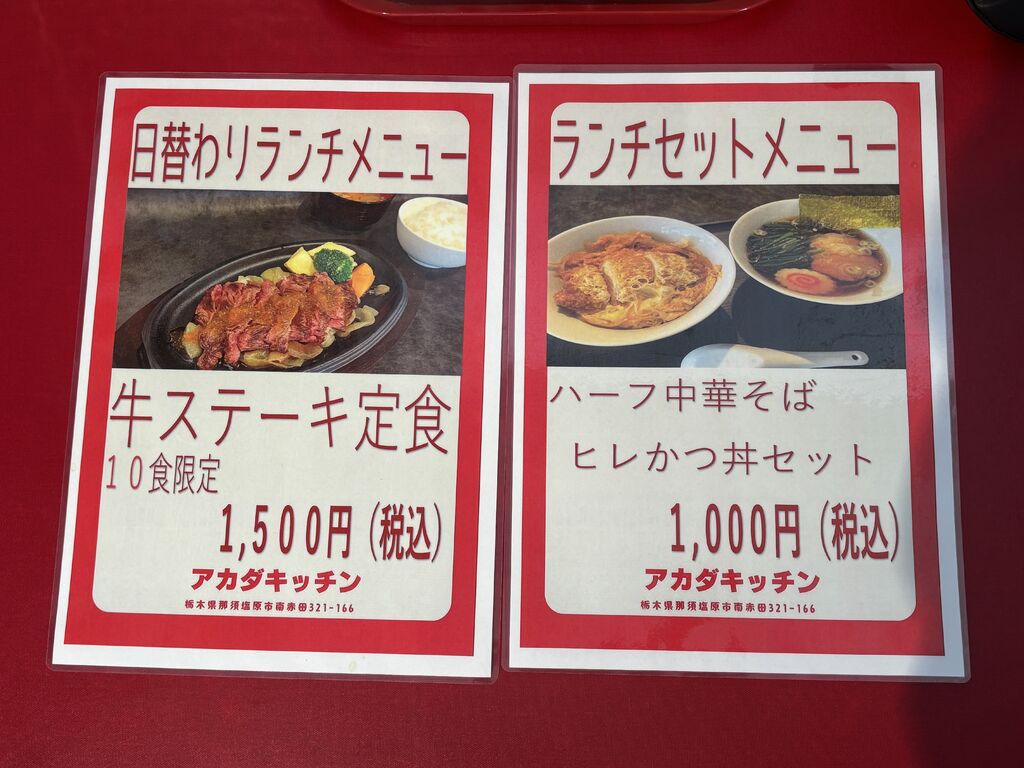 日替わりランチメニュー
牛ステーキ定食
１０食限定
1,500円（税込）
アカダキッチン
栃木県那須塩原市南赤田321-166
ランチセットメニュー
ハーフ中華そば
ヒレかつ丼セット
1,000円（税込）
アカダキッチン
栃木県那須塩原市南赤田321-166